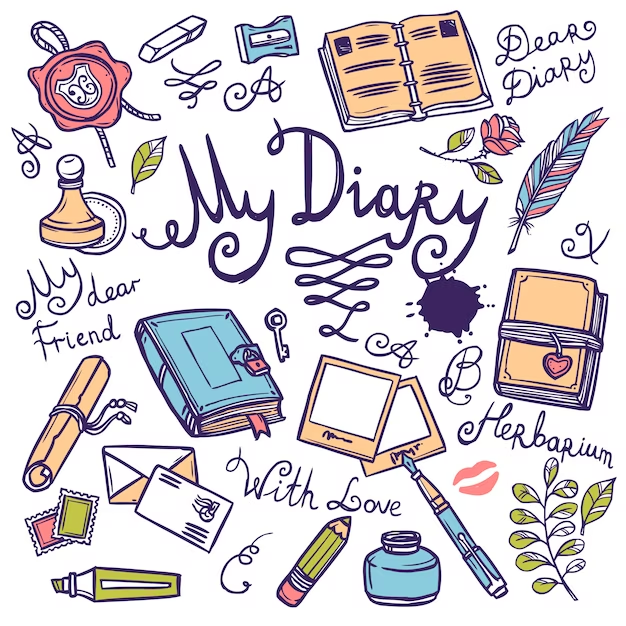 Dear
Diary
A
A
My Diary
X
My dear
Friend
L
A
B
Herbarium
With Love